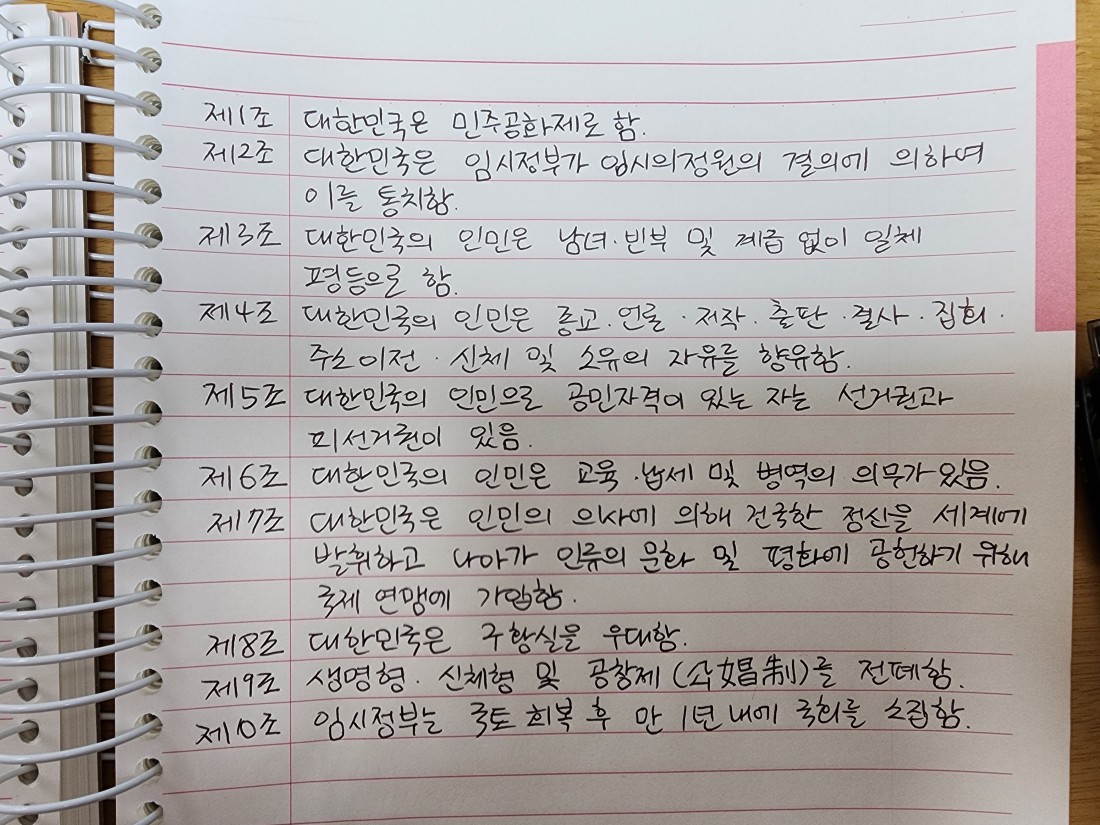 제1조 대한민국은 민주공화제로 함.
제2조 대한민국은 임시정부가 임시의정원의 결의에 의하여
이를 통치함.
제3조 대한민국의 인민은 남녀·빈부 및 계급 없이 일체
평등으로 함.
제4조 대한민국의 인민은 종교·언론·저작·출판·결사·집회·
주소이전·신체 및 소유의 자유를 향유함.
제5조 대한민국의 인민으로 공민자격이 있는 자는 선거권과
피선거권이 있음.
제6조 대한민국의 인민은 교육·납세 및 병역의 의무가 있음.
제7조 대한민국은 인민의 의사에 의해 건국한 정신을 세계에
발휘하고 나아가 인류의 문화 및 평화에 공헌하기 위해
국제 연맹에 가입함.
제8조 대한민국은 구황실을 우대함.
제9조 생명형·신체형 및 공창제(公娼制)를 전폐함.
제10조 임시정부는 국토 회복 후 만 1년 내에 국회를 소집함.